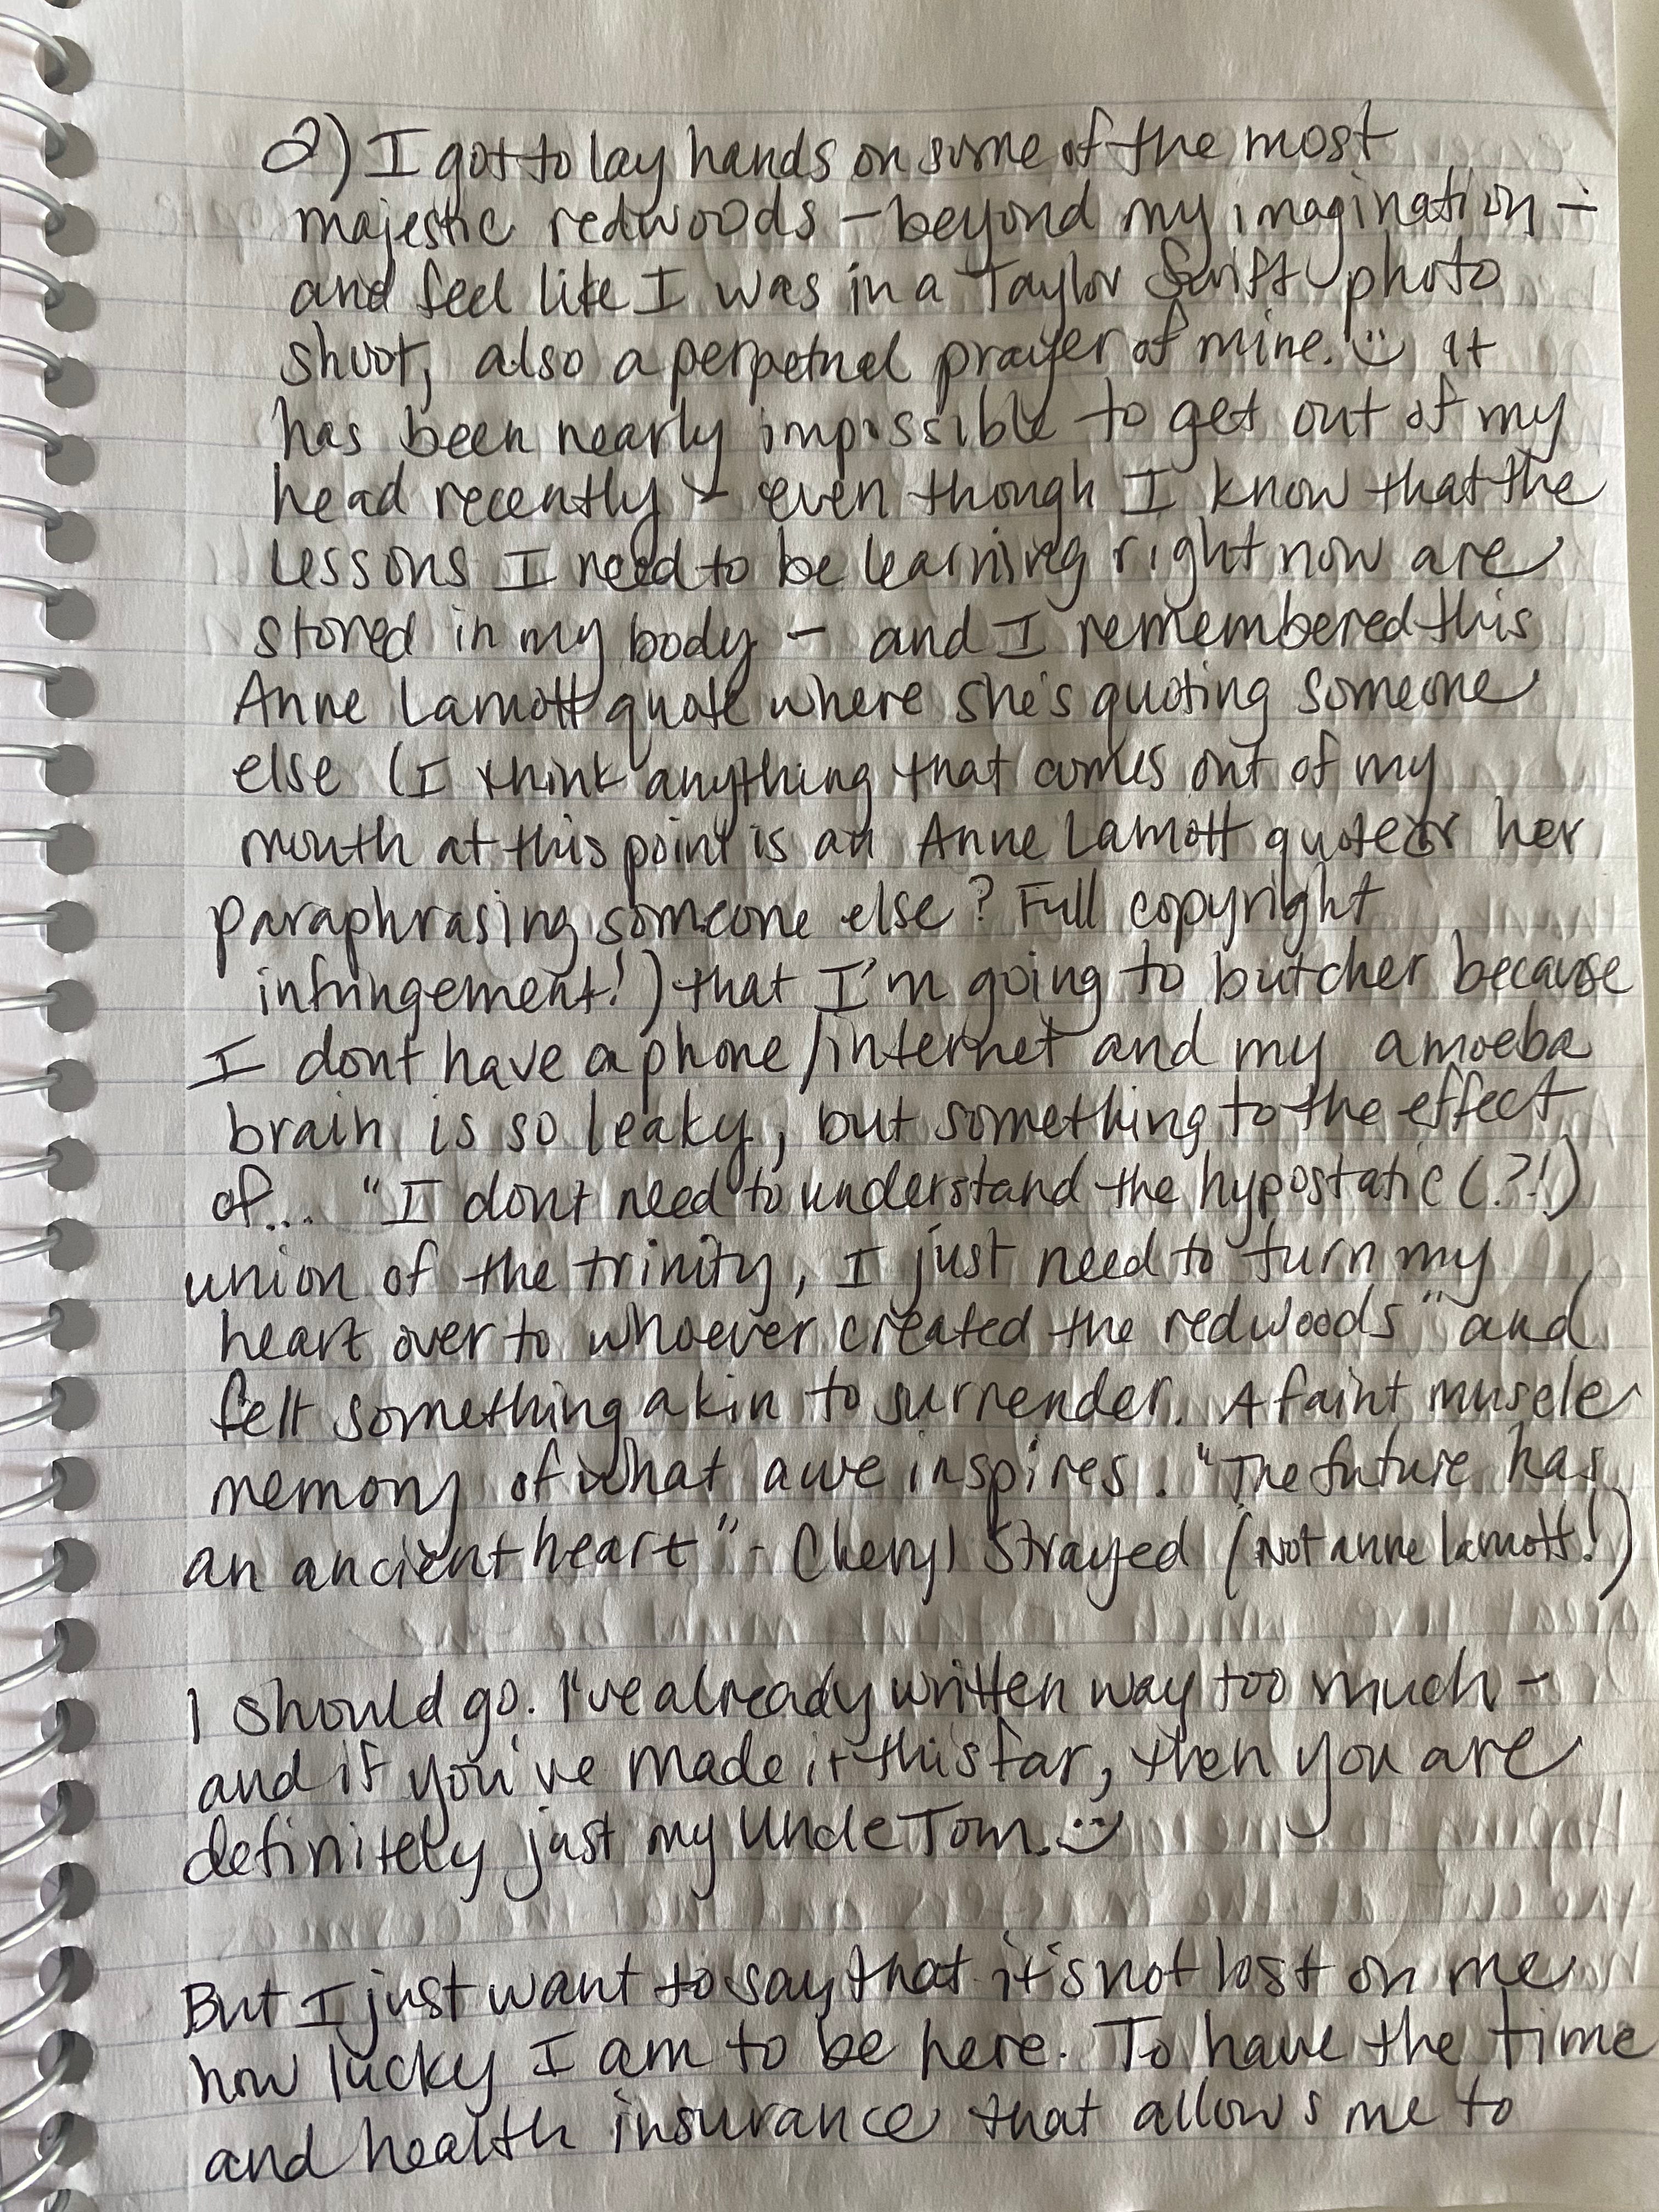 2) I got to lay hands on some of the most
majestic redwoods – beyond my imagination –
and feel like I was in a Taylor Swift photo
shoot, also a perpetual prayer of mine. :) It
has been nearly impossible to get out of my
head recently – even though I know that the
lessons I need to be learning right now are
stored in my body – and I remembered this
Anne Lamott quote where she's quoting someone
else (I think anything that comes out of my
mouth at this point is an Anne Lamott quote or her
paraphrasing someone else? Full copyright
infringement!) that I'm going to butcher because
I dont have a phone/internet and my amoeba
brain is so leaky, but something to the effect
of... "I dont need to understand the hypostatic (?!)
union of the trinity, I just need to turn my
heart over to whoever created the redwoods" and
felt something akin to surrender. A faint muscle
memory of what awe inspires. "The future has
an ancient heart" - Cheryl Strayed (Not anne lamott!)
I should go. I've already written way too much –
and if you've made it this far, then you are
definitely just my Uncle Tom. :)
But I just want to say that it's not lost on me
how lucky I am to be here. To have the time
and health insurance that allows me to